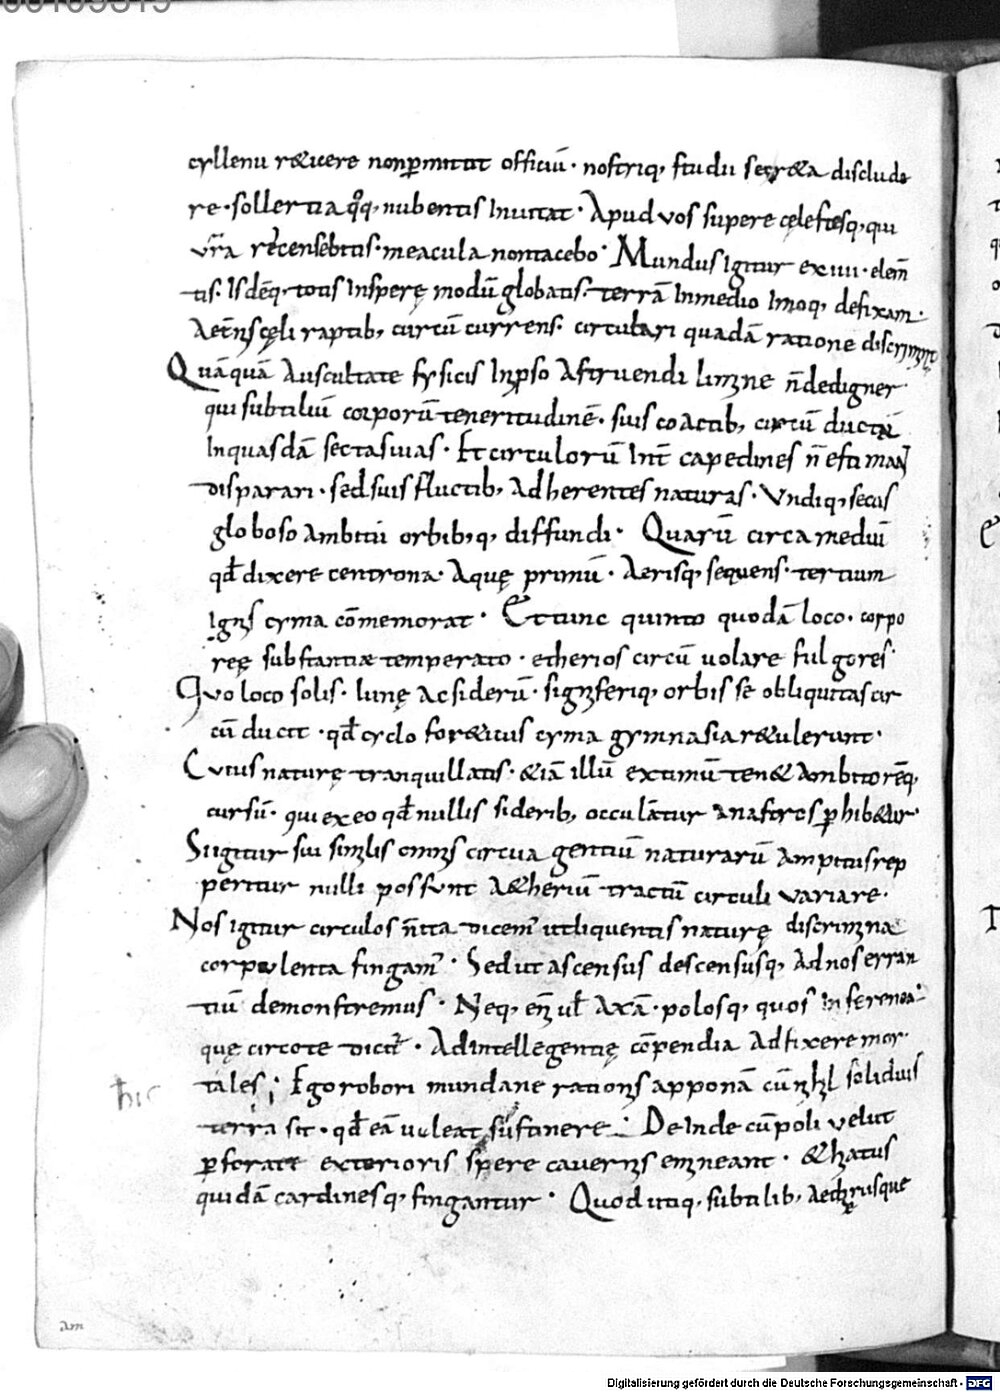 00109819
cyllenu r&icere nonpmittit officiū· nostriq; studii secr&a disclude
re·sollertia qq; nubentis Inuitat· Apud vos supere cęlestesq; qui
vr̄a recensebtus· meacula nontacebo· Mundus igitur ex iiii·elem̄
tis· Isdēq; totis Insperę modū globatis· terrā Inmedio Imoq; defixam·
Aet̄ns cęli raptib; circū currens· circulari quadā ratione discriminat
Quāquā Auscultate fysicis Inipso Astruendi limine n̄dedigner·
qui subtiliū corporū teneritudinē· suis coactib; circū ductā
Inquasdā sectasuias· Et circulorū Int̄ capedines n̄ estimant
disparari· sedsuis fluctib; Adherentes naturas· Vndiq; secus
globoso Ambitu orbib;q; diffundi· Quarū circa mediū
qd̄ dixere centrona· Aquę primū· Aerisq; sequens· tertium
Ignis cyma cōmemorat· Et tunc quinto quodā loco· corpo
reę substantiæ temperato· etherios circū uolare fulgores·
Quo loco solis· lunę ac siderū· signiferiq; orbis se obliquitas cir
cū ducit· qd̄ cyclo for&icus cyma gymnasia r&ulerunt·
Cuius naturę tranquillatis· &iā illū extimū ten& Ambitorēq;
cursū· qui ex eo qd̄ nullis siderib; occulātur anastros phib&ur·
Si igitur sui similis omnis circua gentiū naturarū Ampitus rep
peritur nulli possunt A&heriū tractū circuli variare·
Nos igitur circulos n̄ ita dicem' ut liquentis naturę discrimina
corpulenta fingam'· Sed ut ascensus descensusq; Ad nos erran
tiū demonstremus· Neq; enī ul̄ Axā· polosq; quos
quę circote dict̄· Ad intellegentię cōpendia Adfixere mor
tales; Ego robori mundane rationis apponā cū nihil soliduis
hic
terra sit· qd̄ eā ualeat sustinere· Deinde cū poli velut
pforate exterioris spere cavernis emineant· & hiatus
quidā cardinesq; fingantur· Quod utiq; subtilib; Aethriisque
am
Digitalisierung gefördert durch die Deutsche Forschungsgemeinschaft - DFG